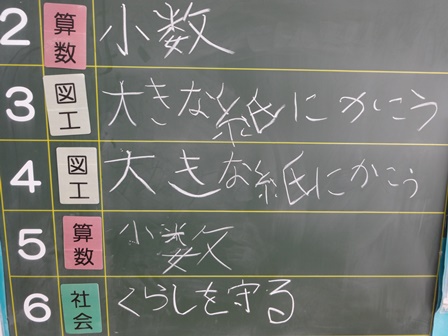 2 算数 小数
3 図工 大きな紙にかこう
4 図工 大きな紙にかこう
5 算数 小数
6 社会 くらしを守る